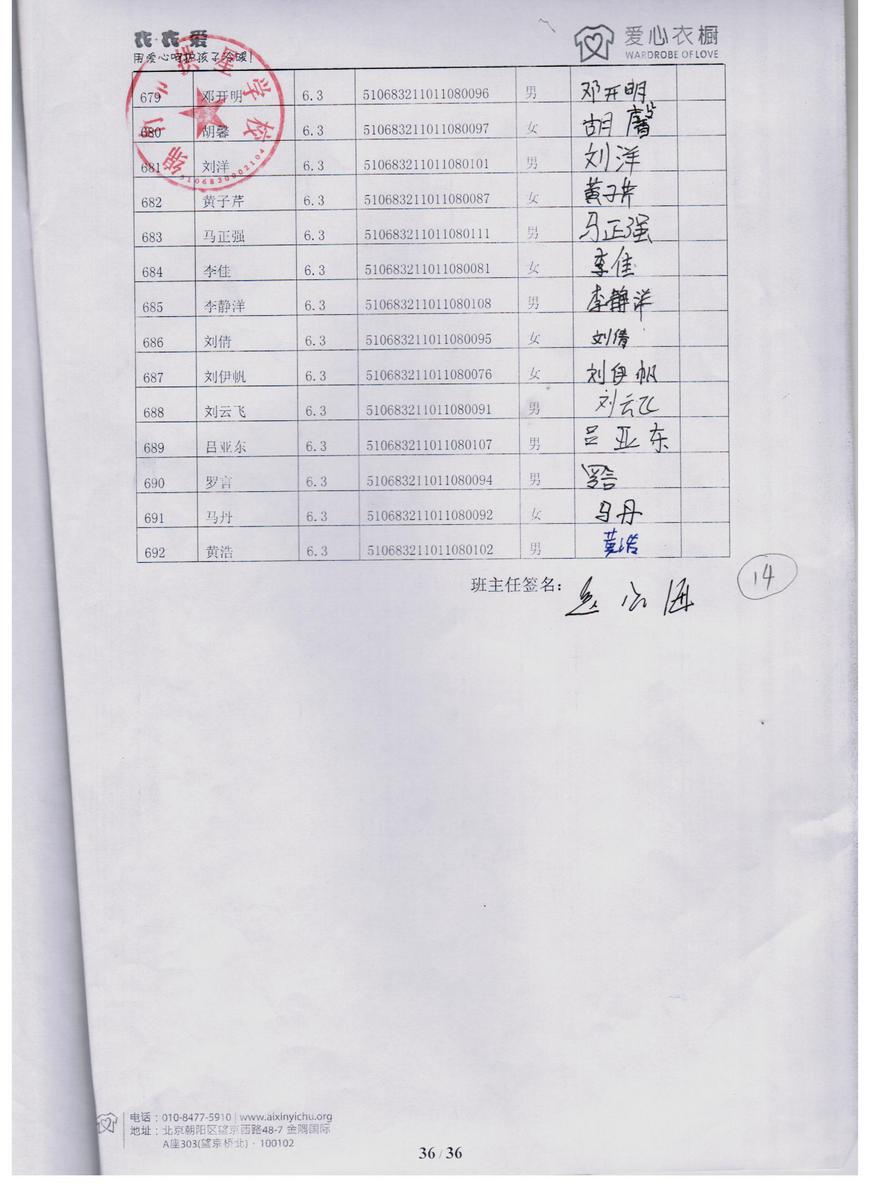 衣·衣·爱
用爱心呵护孩子冷暖!
爱心衣橱
WARDROBE OF LOVE
学校
5106830002104
679 邓开明 6.3 510683211011080096 男 邓开明
680 胡馨 6.3 510683211011080097 女 胡馨
681 刘洋 6.3 510683211011080101 男 刘洋
682 黄子芹 6.3 510683211011080087 女 黄子芹
683 马正强 6.3 510683211011080111 男 马正强
684 李佳 6.3 510683211011080081 女 李佳
685 李静洋 6.3 510683211011080108 男 李静洋
686 刘倩 6.3 510683211011080095 女 刘倩
687 刘伊帆 6.3 510683211011080076 女 刘伊帆
688 刘云飞 6.3 510683211011080091 男 刘云飞
689 吕亚东 6.3 510683211011080107 男 吕亚东
690 罗言 6.3 510683211011080094 男 罗言
691 马丹 6.3 510683211011080092 女 马丹
692 黄浩 6.3 510683211011080102 男 黄浩
班主任签名:
14
电话：010-8477-5910 | www.aixinyichu.org
地址：北京朝阳区望京西路48-7 金隅国际
A座303(望京桥北)·100102
36 / 36